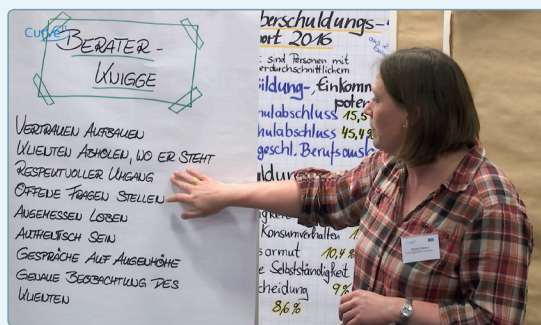 Curve
BERATER-
KNIGGE
VERTRAUEN AUFBAUEN
KLIENTEN ABHOLEN, WO ER STEHT
RESPEKTVOLLER UMGANG
OFFENE FRAGEN STELLEN
ANGEMESSEN LOBEN
AUTHENTISCH SEIN
GESPRÄCHE AUF AUGENHÖHE
GENAUE BEOBACHTUNG DES
KLIENTEN
berschuldungs-
ort 2016
sind Personen mit
erdurchschnittlichem
ildung-, Einkomm
poten
hulabschluss 15,5
hulabschluss 45,4%
geschl. Berufsaus
Konsumverhalten
armut 10,4
e Selbstständigkeit
cheidung 9%
8,6%